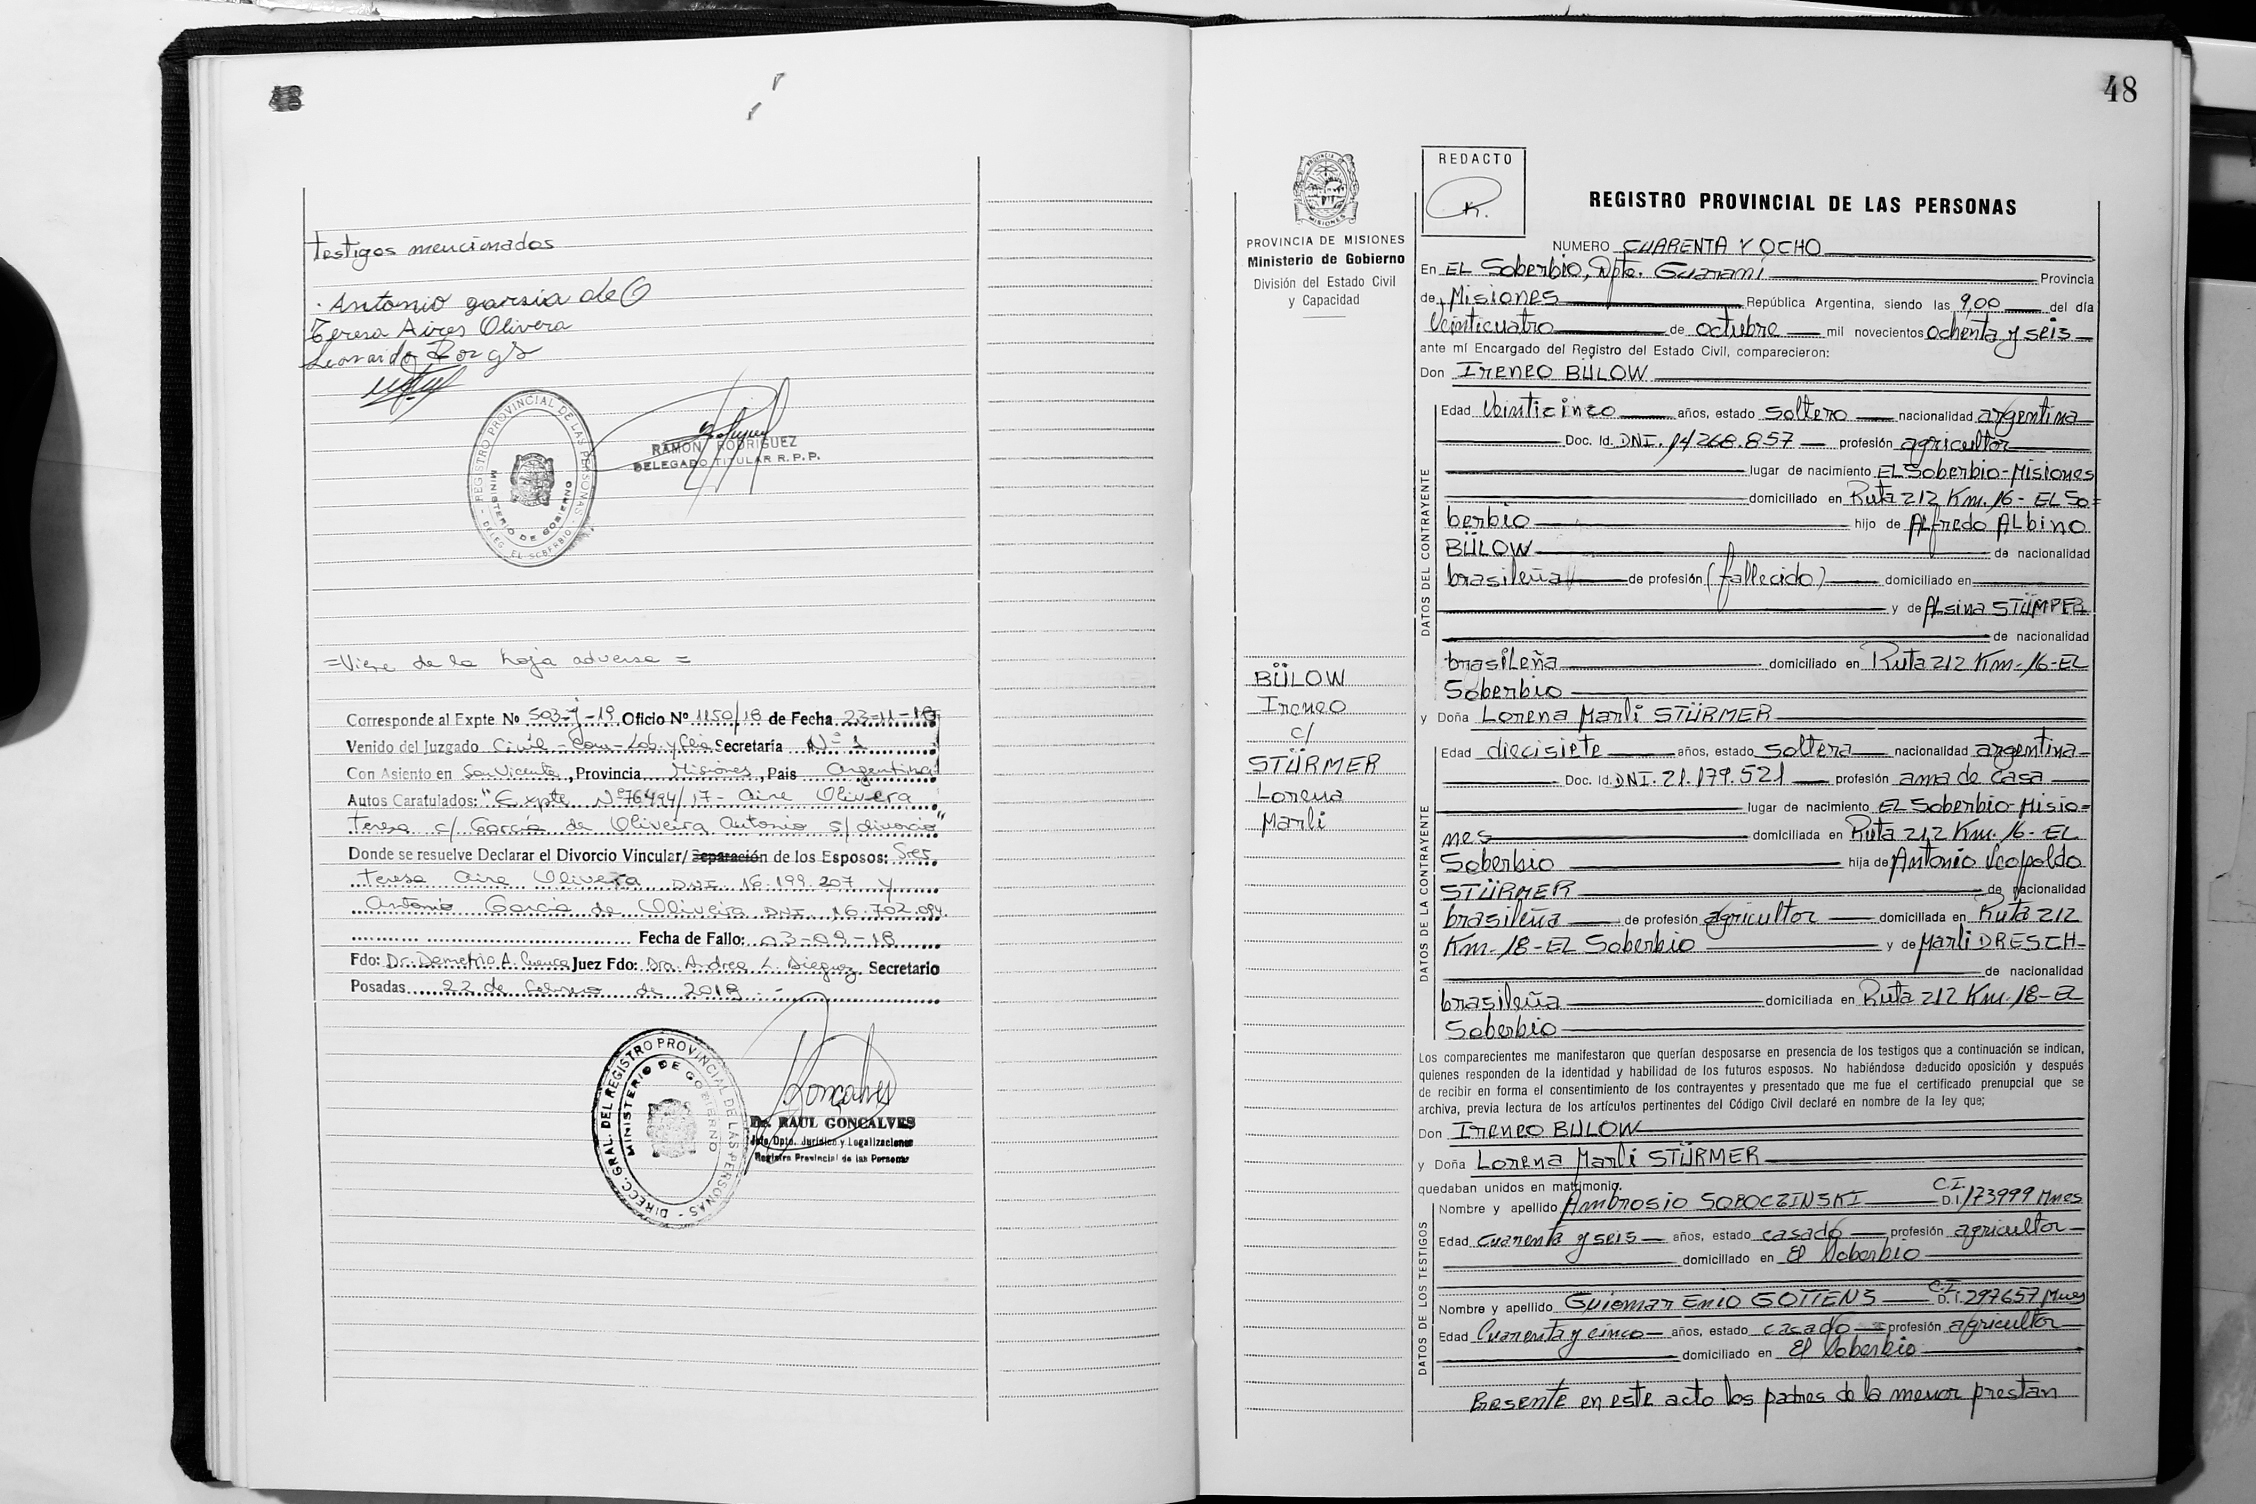 testigos mencionados
Antonio garsia de O
Teresa Aires Olivera
Leonardo
REGISTRO PROVINCIAL DE LAS PERSONAS
MINISTERIO DE GOBIERNO
DELEG. EL SOBERBIO
RAMON RODRIGUEZ
DELEGADO TITULAR R.P.P.
=Viene de la hoja adversa=
Corresponde al Expte Nº 503-J-19 Oficio Nº 1150/18 de Fecha 23-11-18
Venido del Juzgado Civil - Com - Lab. y Flia Secretaría Nº 1
Con Asiento en San Vicente, Provincia Misiones, País Argentina
Autos Caratulados: "Expte Nº 76494/17 - Aire Olivera
Teresa c/ García de Oliveira Antonio s/ divorcio"
Donde se resuelve Declarar el Divorcio Vincular/ Separación de los Esposos: Sres.
Teresa Aire Olivera DNI 16.199.207 y
Antonio García de Oliveira DNI 16.702.094.
Fecha de Fallo: 03-09-18
Fdo: Dr. Demetrio A. Cuenca Juez Fdo: Dra. Andrea L. Dieguez Secretario
Posadas 22 de febrero de 2019.-
DIRECC. GRAL. DEL REGISTRO PROVINCIAL DE LAS PERSONAS
MINISTERIO DE GOBIERNO
Dr. RAUL GONCALVES
Jefe Dpto. Jurídico y Legalizaciones
Registro Provincial de las Personas
48
PROVINCIA DE MISIONES
Ministerio de Gobierno
División del Estado Civil
y Capacidad
BÜLOW
Ireneo
c/
STÜRMER
Lorena
Marli
REDACTO
REGISTRO PROVINCIAL DE LAS PERSONAS
NUMERO CUARENTA Y OCHO
En EL Soberbio, Dpto. Guaraní Provincia
de Misiones República Argentina, siendo las 9,00 del día
Veinticuatro de octubre mil novecientos ochenta y seis
ante mí Encargado del Registro del Estado Civil, comparecieron:
Don Ireneo BÜLOW
DATOS DEL CONTRAYENTE
Edad Veinticinco años, estado soltero nacionalidad argentina
Doc. Id. DNI. 14268.857 profesión agricultor
lugar de nacimiento EL Soberbio-Misiones
domiciliado en Ruta 212 Km. 16 - EL So=
berbio hijo de ALfredo ALbino
BÜLOW de nacionalidad
brasileña de profesión (fallecido) domiciliado en
y de ALsina STÜMPER
de nacionalidad
brasileña domiciliado en Ruta 212 Km-16-EL
Soberbio
y Doña Lorena Marli STÜRMER
DATOS DE LA CONTRAYENTE
Edad diecisiete años, estado soltera nacionalidad argentina
Doc. Id. DNI. 21.179.521 profesión ama de casa
lugar de nacimiento EL Soberbio-Misio=
nes domiciliada en Ruta 212 Km. 16- EL
Soberbio hija de Antonio Leopoldo
STÜRMER de nacionalidad
brasileña de profesión agricultor domiciliada en Ruta 212
Km-18-EL Soberbio y de Marli DRESCH
de nacionalidad
brasileña domiciliada en Ruta 212 Km-18-EL
Soberbio
Los comparecientes me manifestaron que querían desposarse en presencia de los testigos que a continuación se indican,
quienes responden de la identidad y habilidad de los futuros esposos. No habiéndose deducido oposición y después
de recibir en forma el consentimiento de los contrayentes y presentado que me fue el certificado prenupcial que se
archiva, previa lectura de los artículos pertinentes del Código Civil declaré en nombre de la ley que;
Don Ireneo BULOW
y Doña Lorena Marli STÜRMER
quedaban unidos en matrimonio.
DATOS DE LOS TESTIGOS
Nombre y apellido Ambrosio SOBOCZINSKI C.I. D.I. 173999 Mnes
Edad Cuarenta y seis años, estado casado profesión agricultor
domiciliado en El Soberbio
Nombre y apellido Guiomar Enio GOTTENS C.I. D.I. 297657 Mnes
Edad Cuarenta y cinco años, estado casado profesión agricultor
domiciliado en El Soberbio
Presente en este acto los padres de la menor prestan